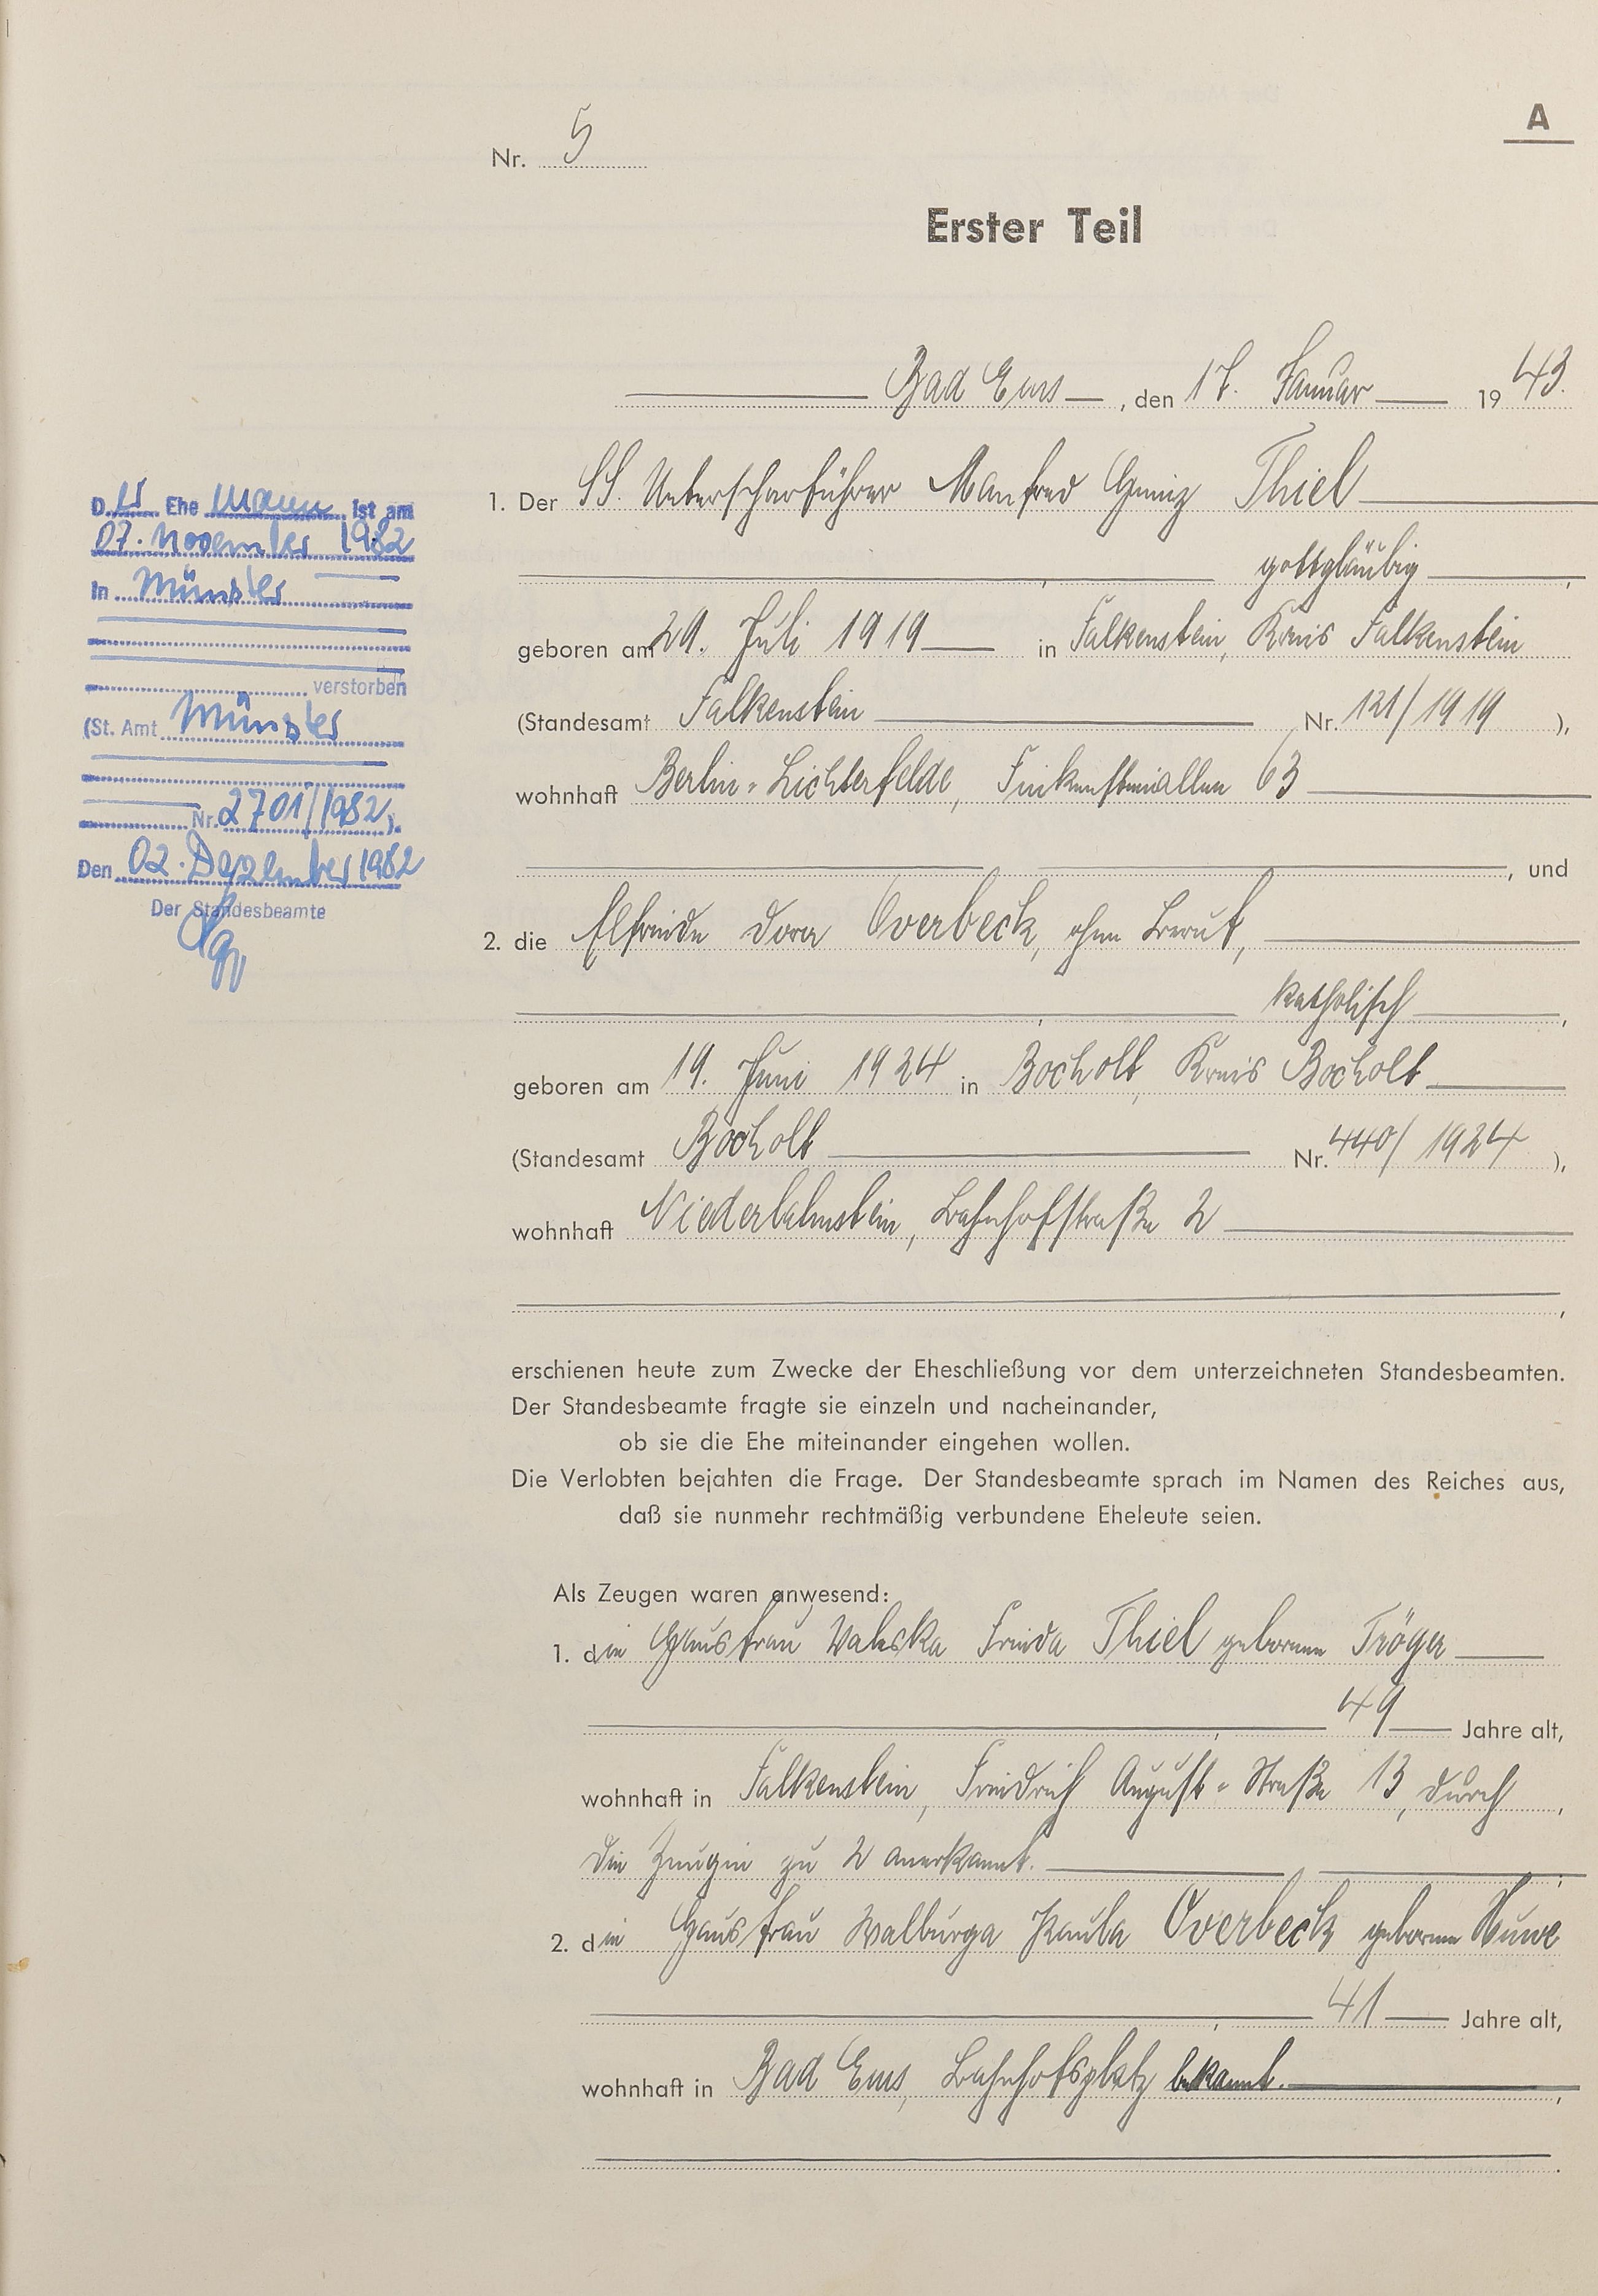 A
Nr. 5
Erster Teil
Bad Ems, den 17. Januar 1943.
1. Der SS. Unterscharführer Manfred Heinz Thiel
, gottgläubig,
geboren am 29. Juli 1919 in Falkenstein, Kreis Falkenstein
(Standesamt Falkenstein Nr. 121/1919 ),
wohnhaft Berlin-Lichterfelde, Finkensteinallee 63
, und
2. die Elfriede Dora Overbeck, ohne Beruf,
, katholisch,
geboren am 19. Juni 1924 in Bocholt, Kreis Bocholt
(Standesamt Bocholt Nr. 440/1924 ),
wohnhaft Niederlahnstein, Bahnhofstraße 2
,
erschienen heute zum Zwecke der Eheschließung vor dem unterzeichneten Standesbeamten.
Der Standesbeamte fragte sie einzeln und nacheinander,
ob sie die Ehe miteinander eingehen wollen.
Die Verlobten bejahten die Frage. Der Standesbeamte sprach im Namen des Reiches aus,
daß sie nunmehr rechtmäßig verbundene Eheleute seien.
Als Zeugen waren anwesend:
1. die Hausfrau Valeska Frieda Thiel geborene Tröger
, 49 Jahre alt,
wohnhaft in Falkenstein, Friedrich August-Straße 13, durch,
die Zeugin zu 2 anerkannt.
2. die Hausfrau Walburga Paula Overbeck geborene Huwe
, 41 Jahre alt,
wohnhaft in Bad Ems, Bahnhofsplatz bekannt.
D er Ehe mann ist am
07. November 1982
in Münster
verstorben
(St. Amt Münster
Nr. 2701/1982).
Den 02. Dezember 1982
Der Standesbeamte